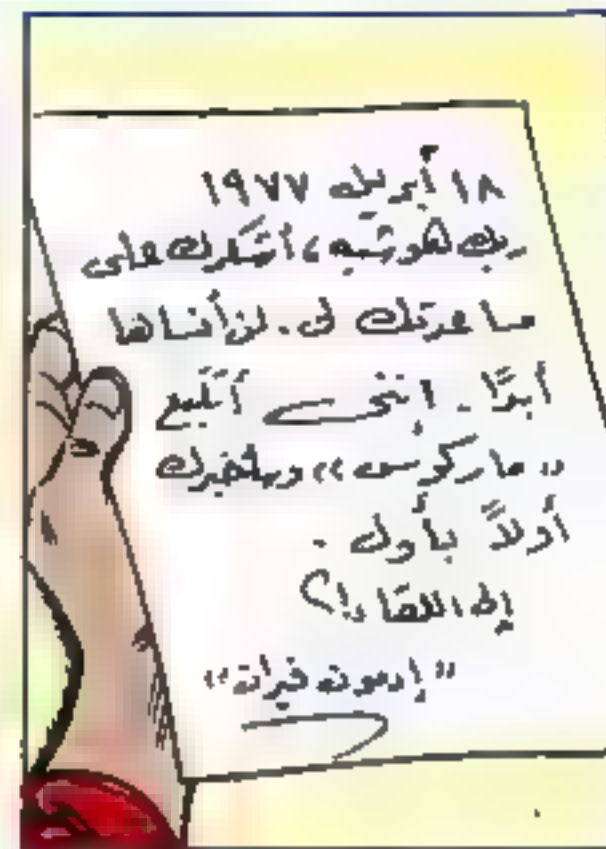 ١٨ أبريل ١٩٧٧
أشكرك على
مساعدتك لى. لن أنساها
أبدًا. إننى أتبع
«ماركوس» وسأخبرك
أولاً بأول.
إلى اللقاء!؟